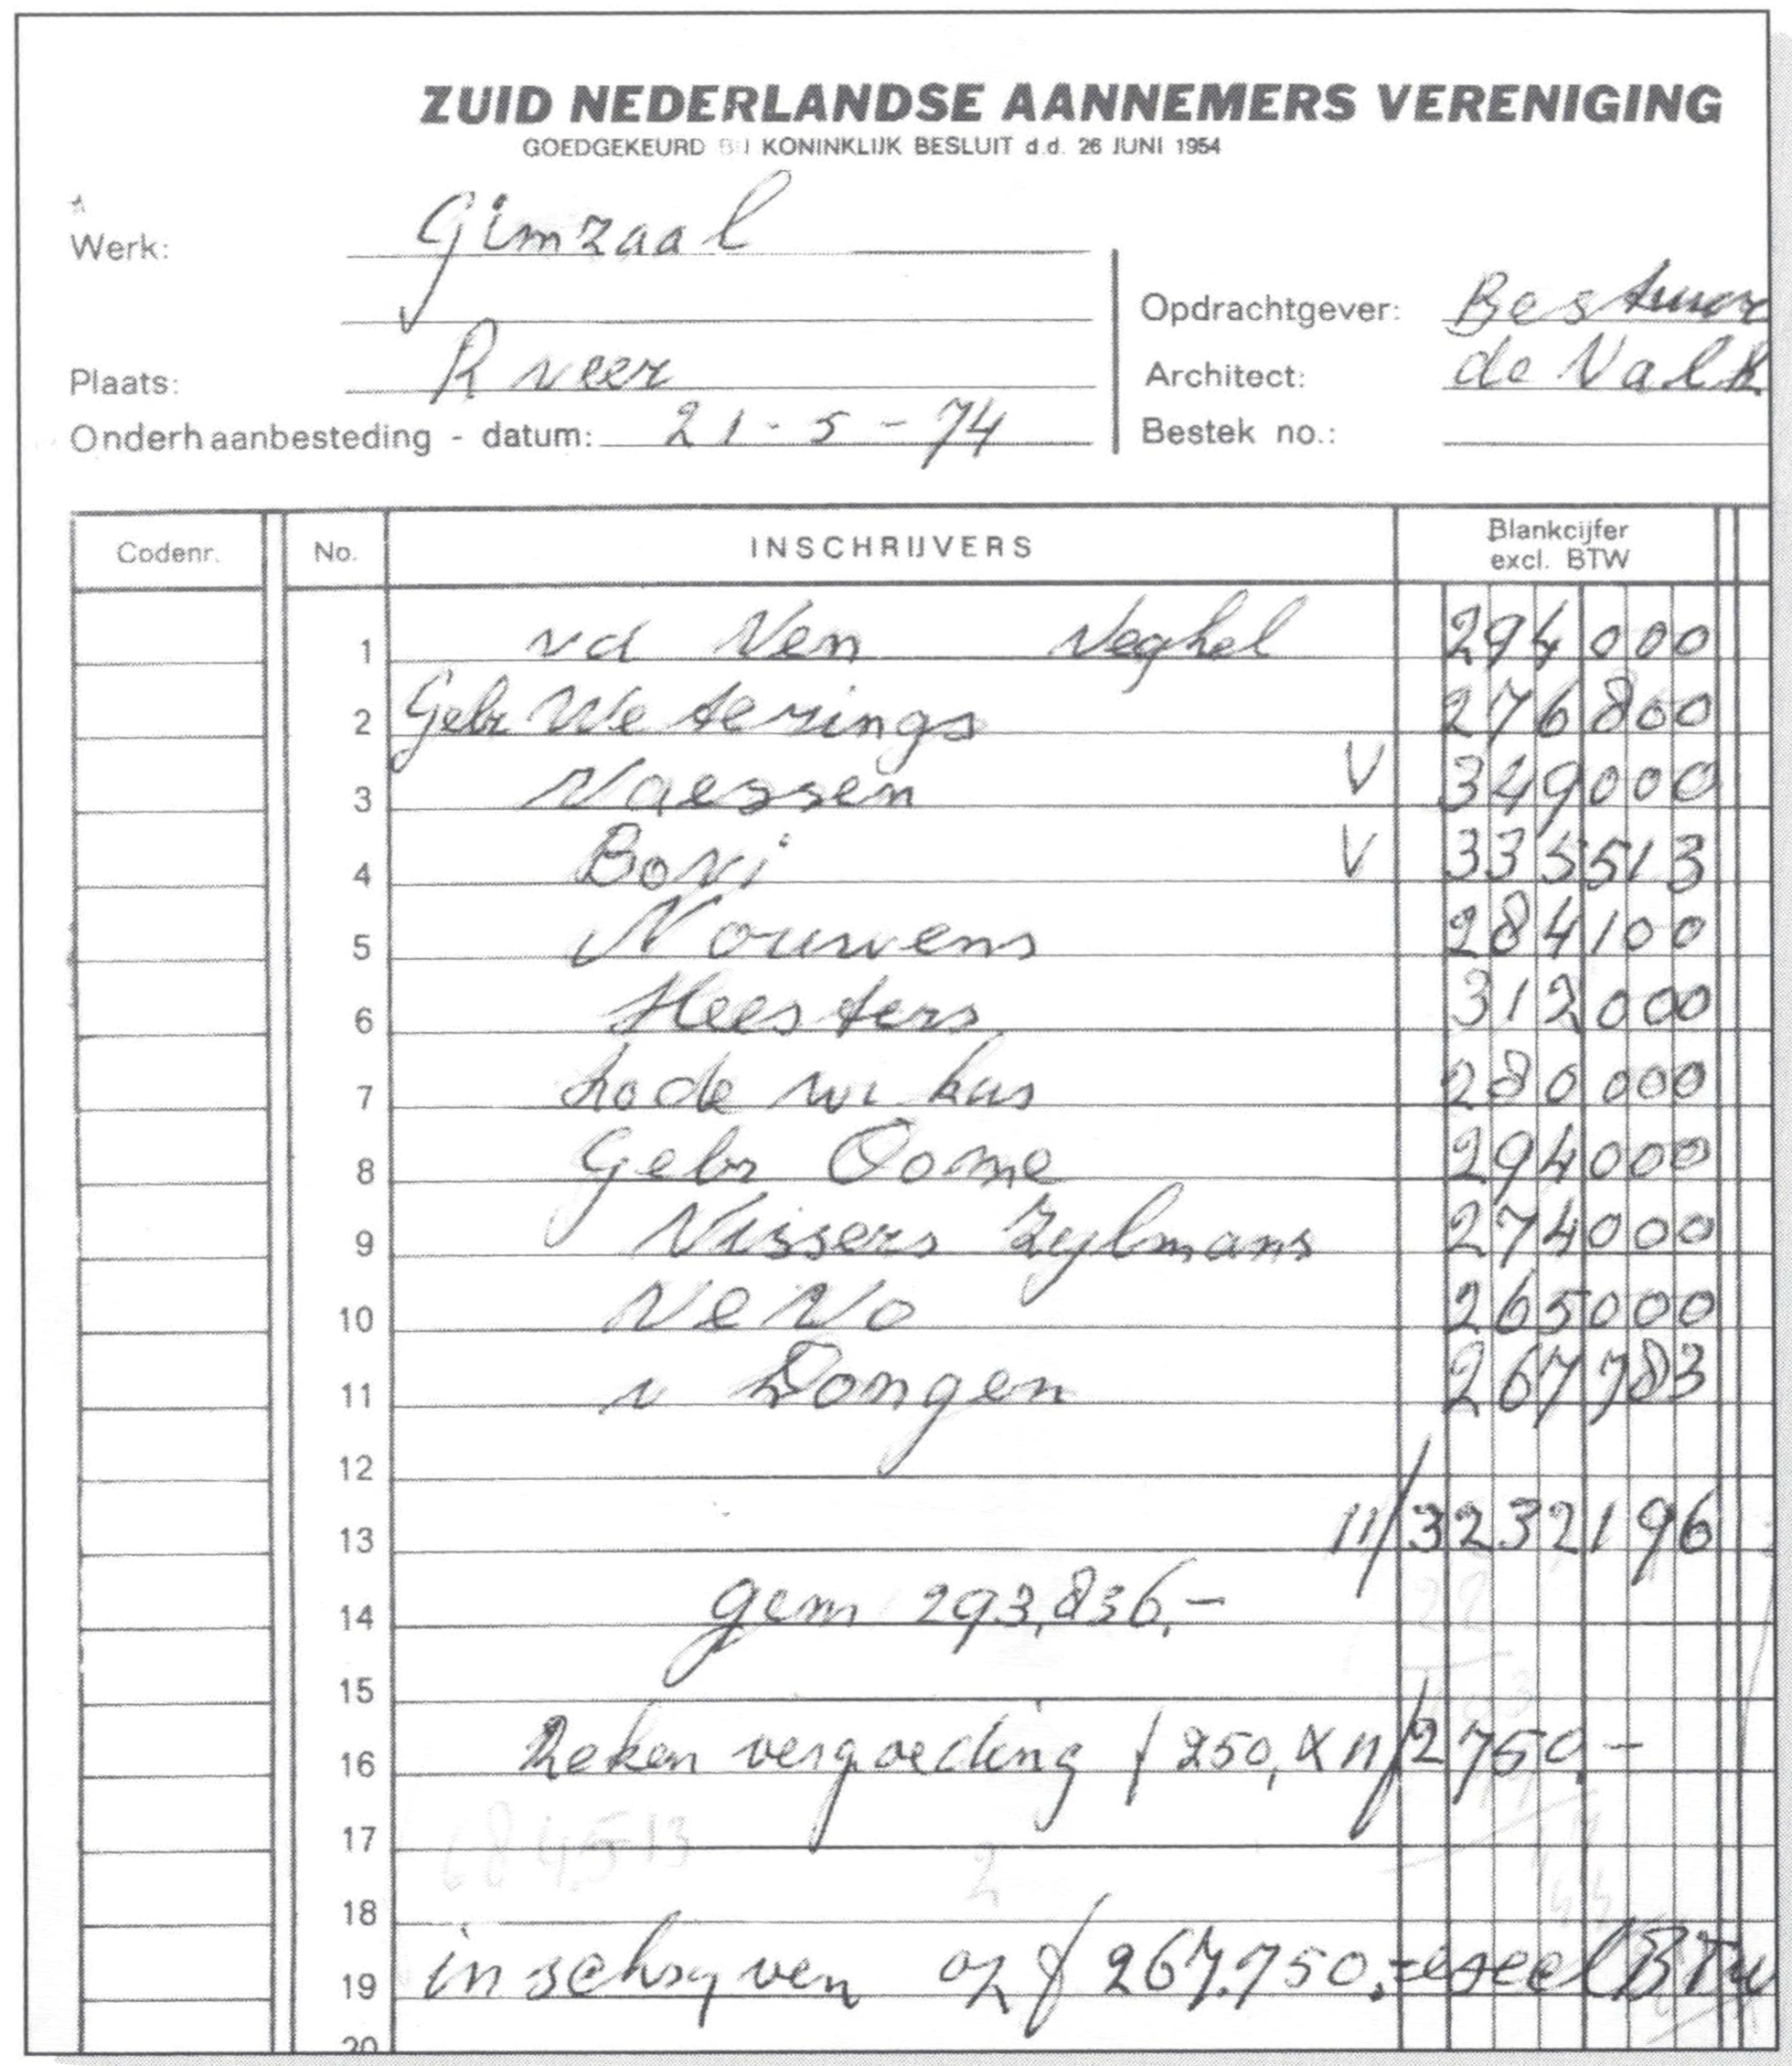 ZUID NEDERLANDSE AANNEMERS VERENIGING
GOEDGEKEURD BIJ KONINKLIJK BESLUIT d.d. 26 JUNI 1954
Werk: Gimzaal
Opdrachtgever: Bestuur
Plaats: R veer
Architect: de Valk
Onderhaanbesteding - datum: 21-5-74
Bestek no.:
Codenr. No. INSCHRIJVERS Blankcijfer excl. BTW
1 vd Ven Veghel 294000
2 Gebr Weterings 276800
3 Vaessen V 349000
4 Bovi V 335513
5 Nouwens 284100
6 Heesters 312000
7 Lodewikus 280000
8 Gebr Oome 294000
9 Vissers Zylmans 274000
10 VeVo 265000
11 v Dongen 267783
12
13 11/3232196
14 gem 293,836,-
15
16 Reken vergoeding f 250, x 11/2750,-
17 684513 2
18
19 inschryven op f 267.750,= excl BTW
20